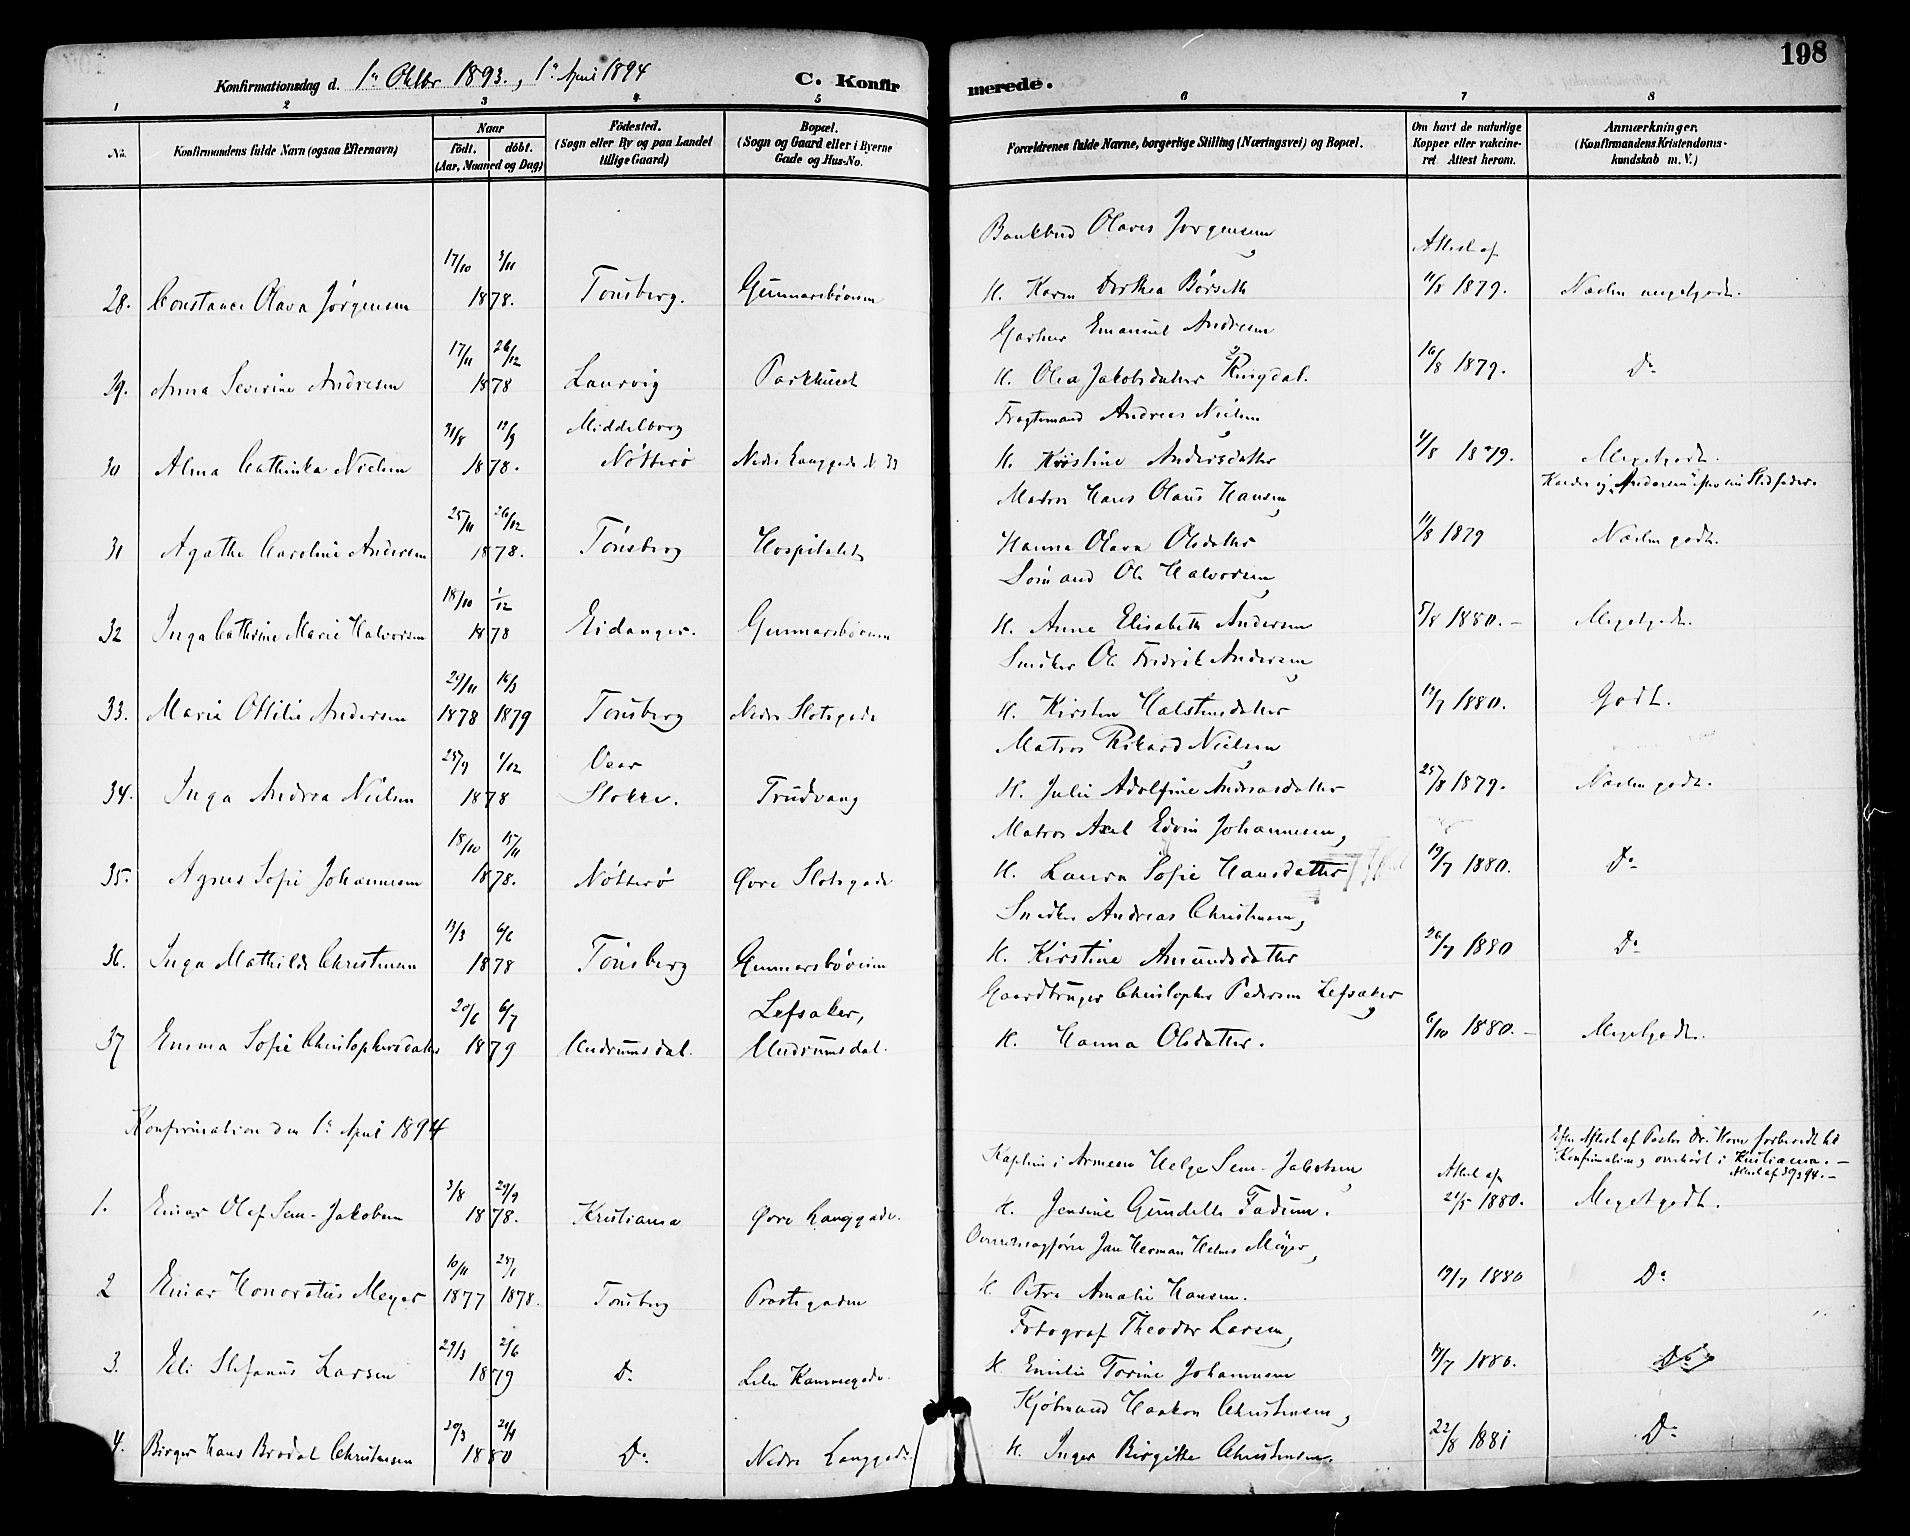 198
Konfirmationsdag d. 1ste Oktbr 1893., 1ste April 1894
C. Konfirmerede.
1 2 3 4 5 6 7 8
No. Konfirmandens fulde Navn (ogsaa Efternavn) Naar födt. döbt. (Aar, Maaned og Dag) Födested. (Sogn eller By og paa Landet tillige Gaard) Bopæl. (Sogn og Gaard eller i Byerne Gade og Hus-No. Forældrenes fulde Navne, borgerlige Stilling (Næringsvei) og Bopæl. Om havt de naturlige Kopper eller vakcineret. Attest herom. Anmærkninger. (Konfirmandens Kristendomskundskab m. V.)
Bankbud Olaves Jørgensen,
17/10 3/11 Attest af
28. Constance Olava Jørgensen 1878. Tønsberg. Gunnarsbøveien H. Karen Dorthea Børseth 11/8 1879. Næsten megetgodt.
Gartner Emanuel Andresen
17/11 26/12
29. Anna Severine Andresen 1878 Laurvig Parkhuset H. Olea Jakobsdatter Ringdal. 16/8 1879. Do
31/8 19/9 Middelborg Fragtemand Andreas Nielsen,
30 Alma Cathinka Nielsen 1878. Nøtterø Nedre Langgade N. 33 H. Kristine Andersdatter 4/8 1879. Megetgodt.
Matros Hans Olaus Hansen, Kalder sig "Andersen" efter sin Stedfader.
25/11 26/12
31 Agathe Caroline Andersen 1878. Tønsberg Hospitalet Hanna Olava Olsdatter 11/8 1879 Næsten godt.
Sømand Ole Halvorsen,
18/10 1/12
32 Inga Cathrine Marie Halvorsen 1878 Eidanger. Gunnarsbøveien H. Anne Elisabeth Andersen 5/8 1880.— Megetgodt.
Snedker Ole Fredrik Andersen,
29/11 16/3
33. Marie Ottilie Andersen 1878 1879 Tønsberg Nedre Slotsgade H. Kirsten Halstensdatter 19/7 1880. Godt.
Matros Rikard Nielsen,
25/9 1/12
34. Inga Andrea Nielsen 1878 Stokke. Trudvang H. Julie Adolfine Andreasdatter 25/8 1879. Næsten godt.
18/10 15/11 Matros Axel Edvin Johannesen,
35. Agnes Sofie Johannesen 1878. Nøtterø Øvre Slotsgade H. Laura Sofie Hansdatter 19/7 1880. Do
Snedker Andreas Christensen,
13/3 6/6
36. Inga Mathilde Christensen 1878 Tønsberg Gunnarsbøveien H. Kirstine Amundsdatter 26/7 1880 Do
20/6 6/7 Lefsaker, Gaardbruger Christopher Pedersen Lefsaker,
37 Emma Sofie Christophersdatter 1879 Undrumsdal. Undrumsdal. H. Hanna Olsdatter. 6/10 1880.— Megetgodt.
Konfirmation den 1ste April 1894
Efter Attest af Pastor Dr. Horn forberedt til Konfirmation, omhørt i Kristiania.—
Kaptein i Armeen Helge Sem-Jakobsen, Attest af
3/8 29/9
1. Einar Olaf Sem-Jakobsen 1878. Kristiania Øvre Langgade. H. Jensine Gundelle Fadum. 21/5 1880. Megetgodt.
Overretssagfører Jan Herman Helms Meyer,
10/11 25/1
2 Einar Honoratus Meyer 1877 1878. Tønsberg Præstegaden H. Petra Amalie Hansen. 19/7 1880 Do
Fotograf Theodor Larsen,
29/3 2/6
3. Eli Stefanus Larsen 1879 Do Lille Kammegade. H. Emilie Torine Johannesen 19/7 1880. Do
Kjøbmand Haakon Christensen,
20/3 21/4
4. Birger Hans Brodal Christensen 1880 Do Nedre Langgade. H. Inger Birgitte Christensen. 22/8 1881 Do